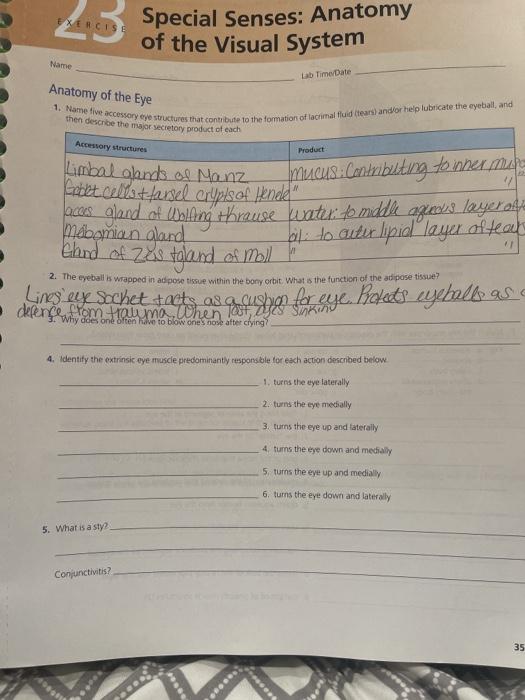 EXERCISE
23
Special Senses: Anatomy
of the Visual System
Name
Lab Time/Date
Anatomy of the Eye
1. Name five accessory eye structures that contribute to the formation of lacrimal fluid (tears) and/or help lubricate the eyeball, and
then describe the major secretory product of each
Accessory structures Product
Limbal glands of Manz mucus: Contributing to inner
Goblet cells + tarsel crypts of Henele "
gland of Wolfring + krause water: to middle aqerous layer of
mebomian gland oil: to outer lipid layer of tears
Gland of Zeis + gland of moll "
2. The eyeball is wrapped in adipose tissue within the bony orbit. What is the function of the adipose tissue?
Lines eye socket + acts as a cushion for eye. Protects eyeballs as
defence from trauma. When lost, eyes sinking
3. Why does one often have to blow one's nose after crying?
4. Identify the extrinsic eye muscle predominantly responsible for each action described below.
1. turns the eye laterally
2. turns the eye medially
3. turns the eye up and laterally
4. turns the eye down and medially
5. turns the eye up and medially
6. turns the eye down and laterally
5. What is a sty?
Conjunctivitis?
35